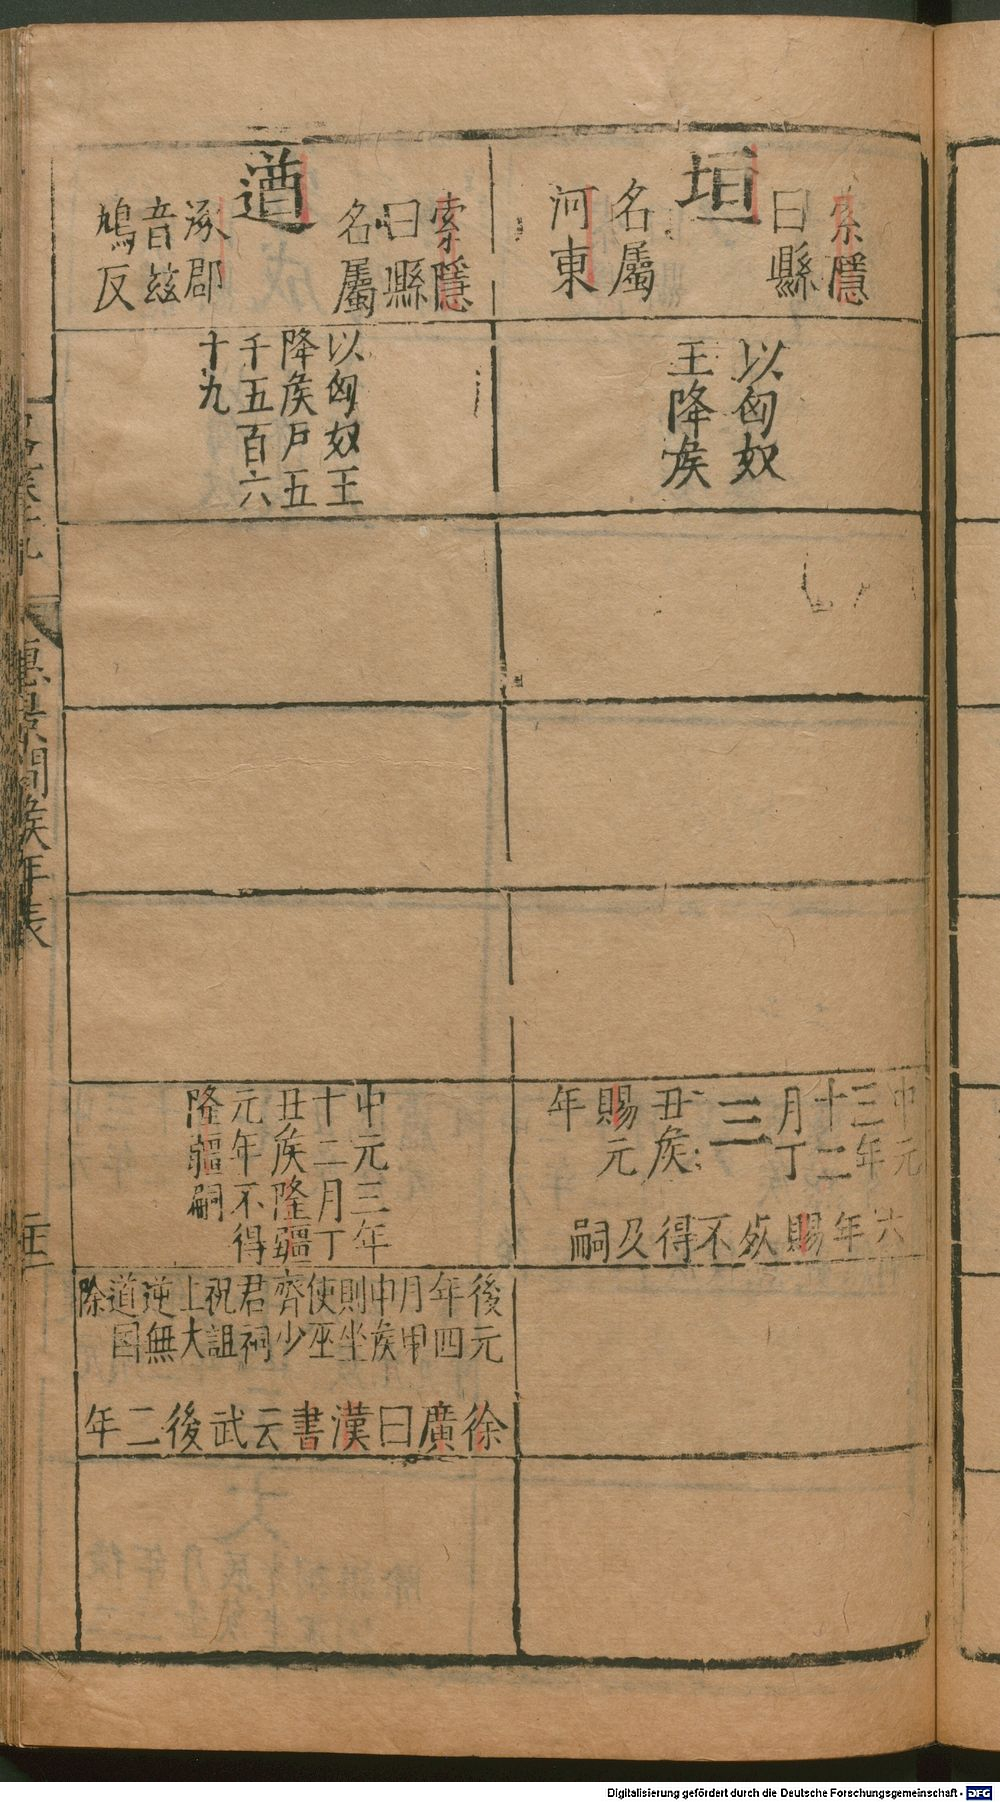 垣
索隱
曰縣
名屬
河東
以匈奴
王降矦
中元
三年
十二
月丁
三
丑矦
賜元
年
六年賜死不得及嗣
遒
索隱
曰縣
名屬
涿郡
音兹
鳩反
以匈奴王
降矦戸五
千五百六
十九
中元三年
十二月丁
丑矦隆疆
元年不得
隆疆嗣
後元
年四
月甲
申矦
則坐
使巫
齊少
君祠
祝詛
上大
逆無
道国
除
徐廣曰漢書云武後二年
惠景間矦年表
Digitalisierung gefördert durch die Deutsche Forschungsgemeinschaft - DFG